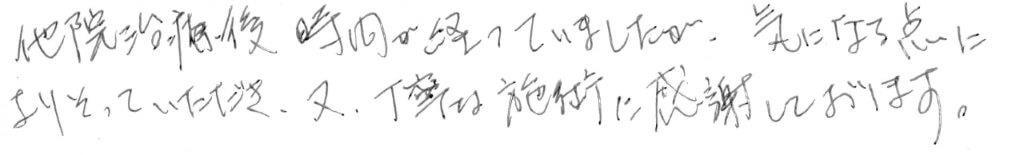 他院治療後 時間が経っていましたが、気になる点に
よりそっていただき、又、丁寧な施術に感謝しております。